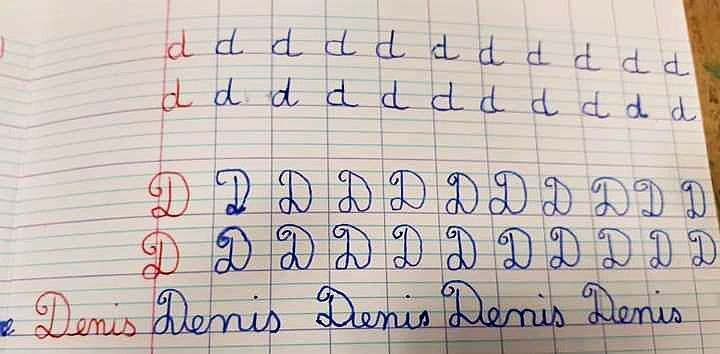 d d d d d d d d d d d
d d d d d d d d d d d
D D D D D D D D D D D
D D D D D D D D D D D
e Denis Denis Denis Denis Denis